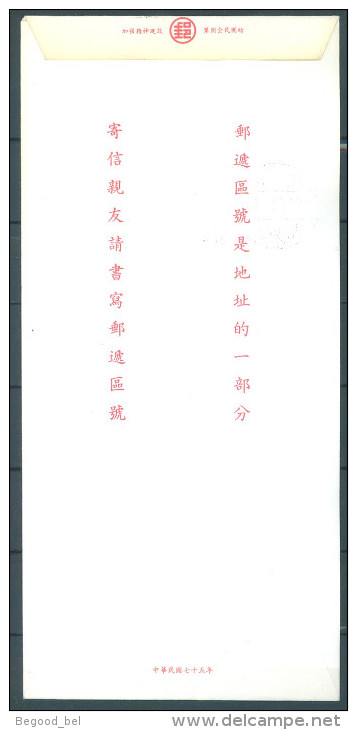 加強精神建設 郵 革新公民風姑
郵遞區號是地址的一部分
寄信親友請書寫郵遞區號
中華民國七十五年
Begood_bel
www.delcampe.net